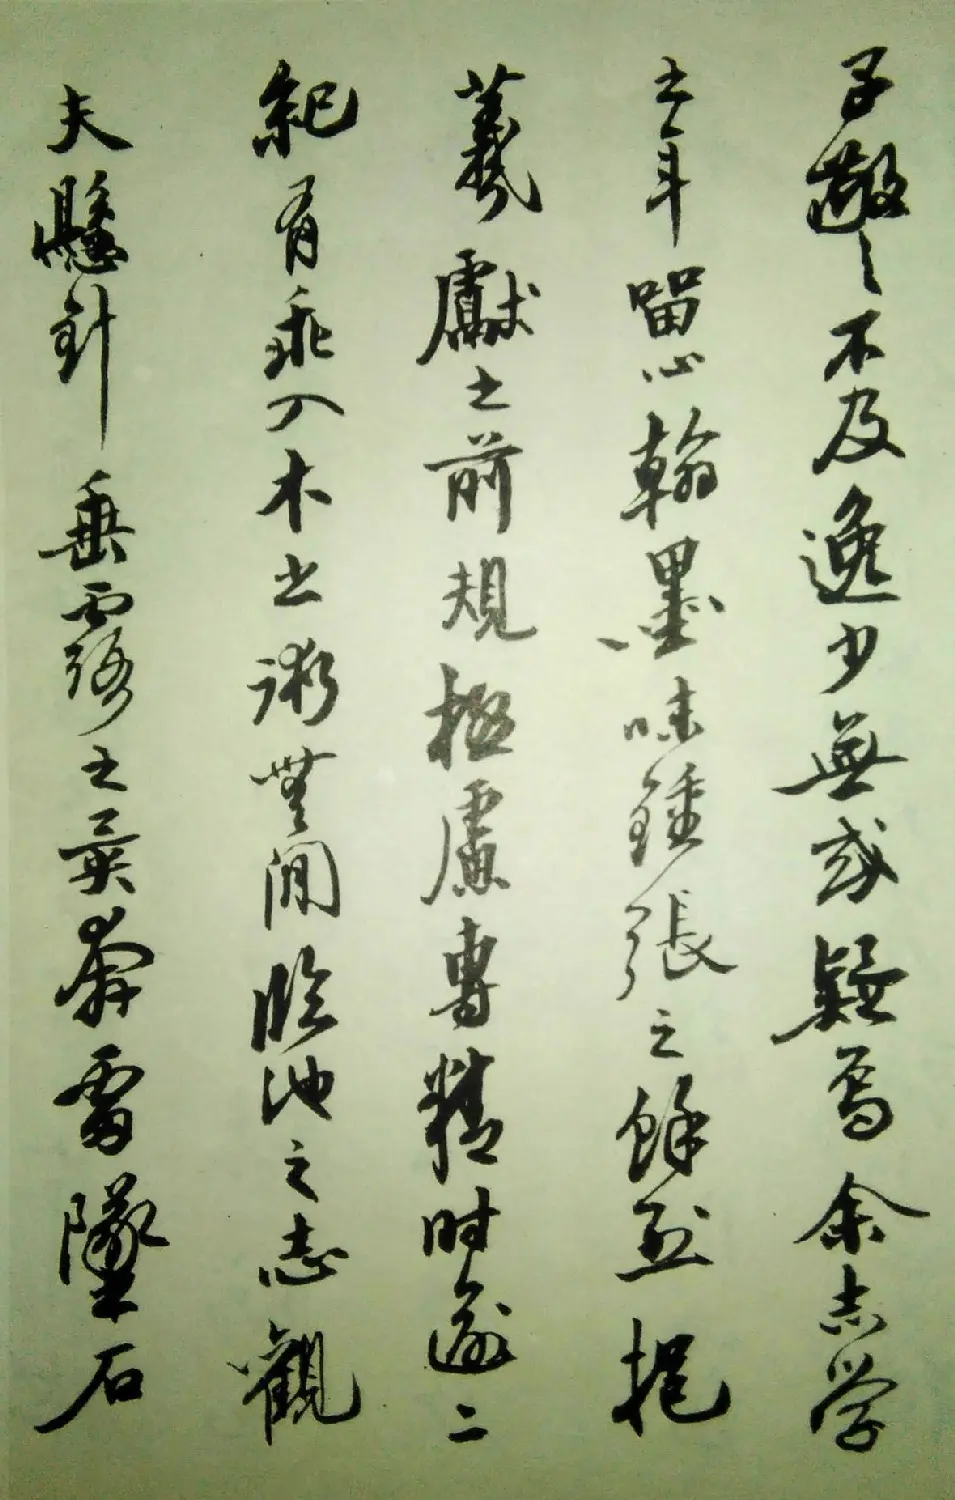 子敬之不及逸少無或疑焉余志学
之年留心翰墨味鍾張之餘烈挹
羲獻之前規極慮專精時逾二
紀有乖入木之術無間臨池之志觀
夫懸針垂露之異奔雷墜石